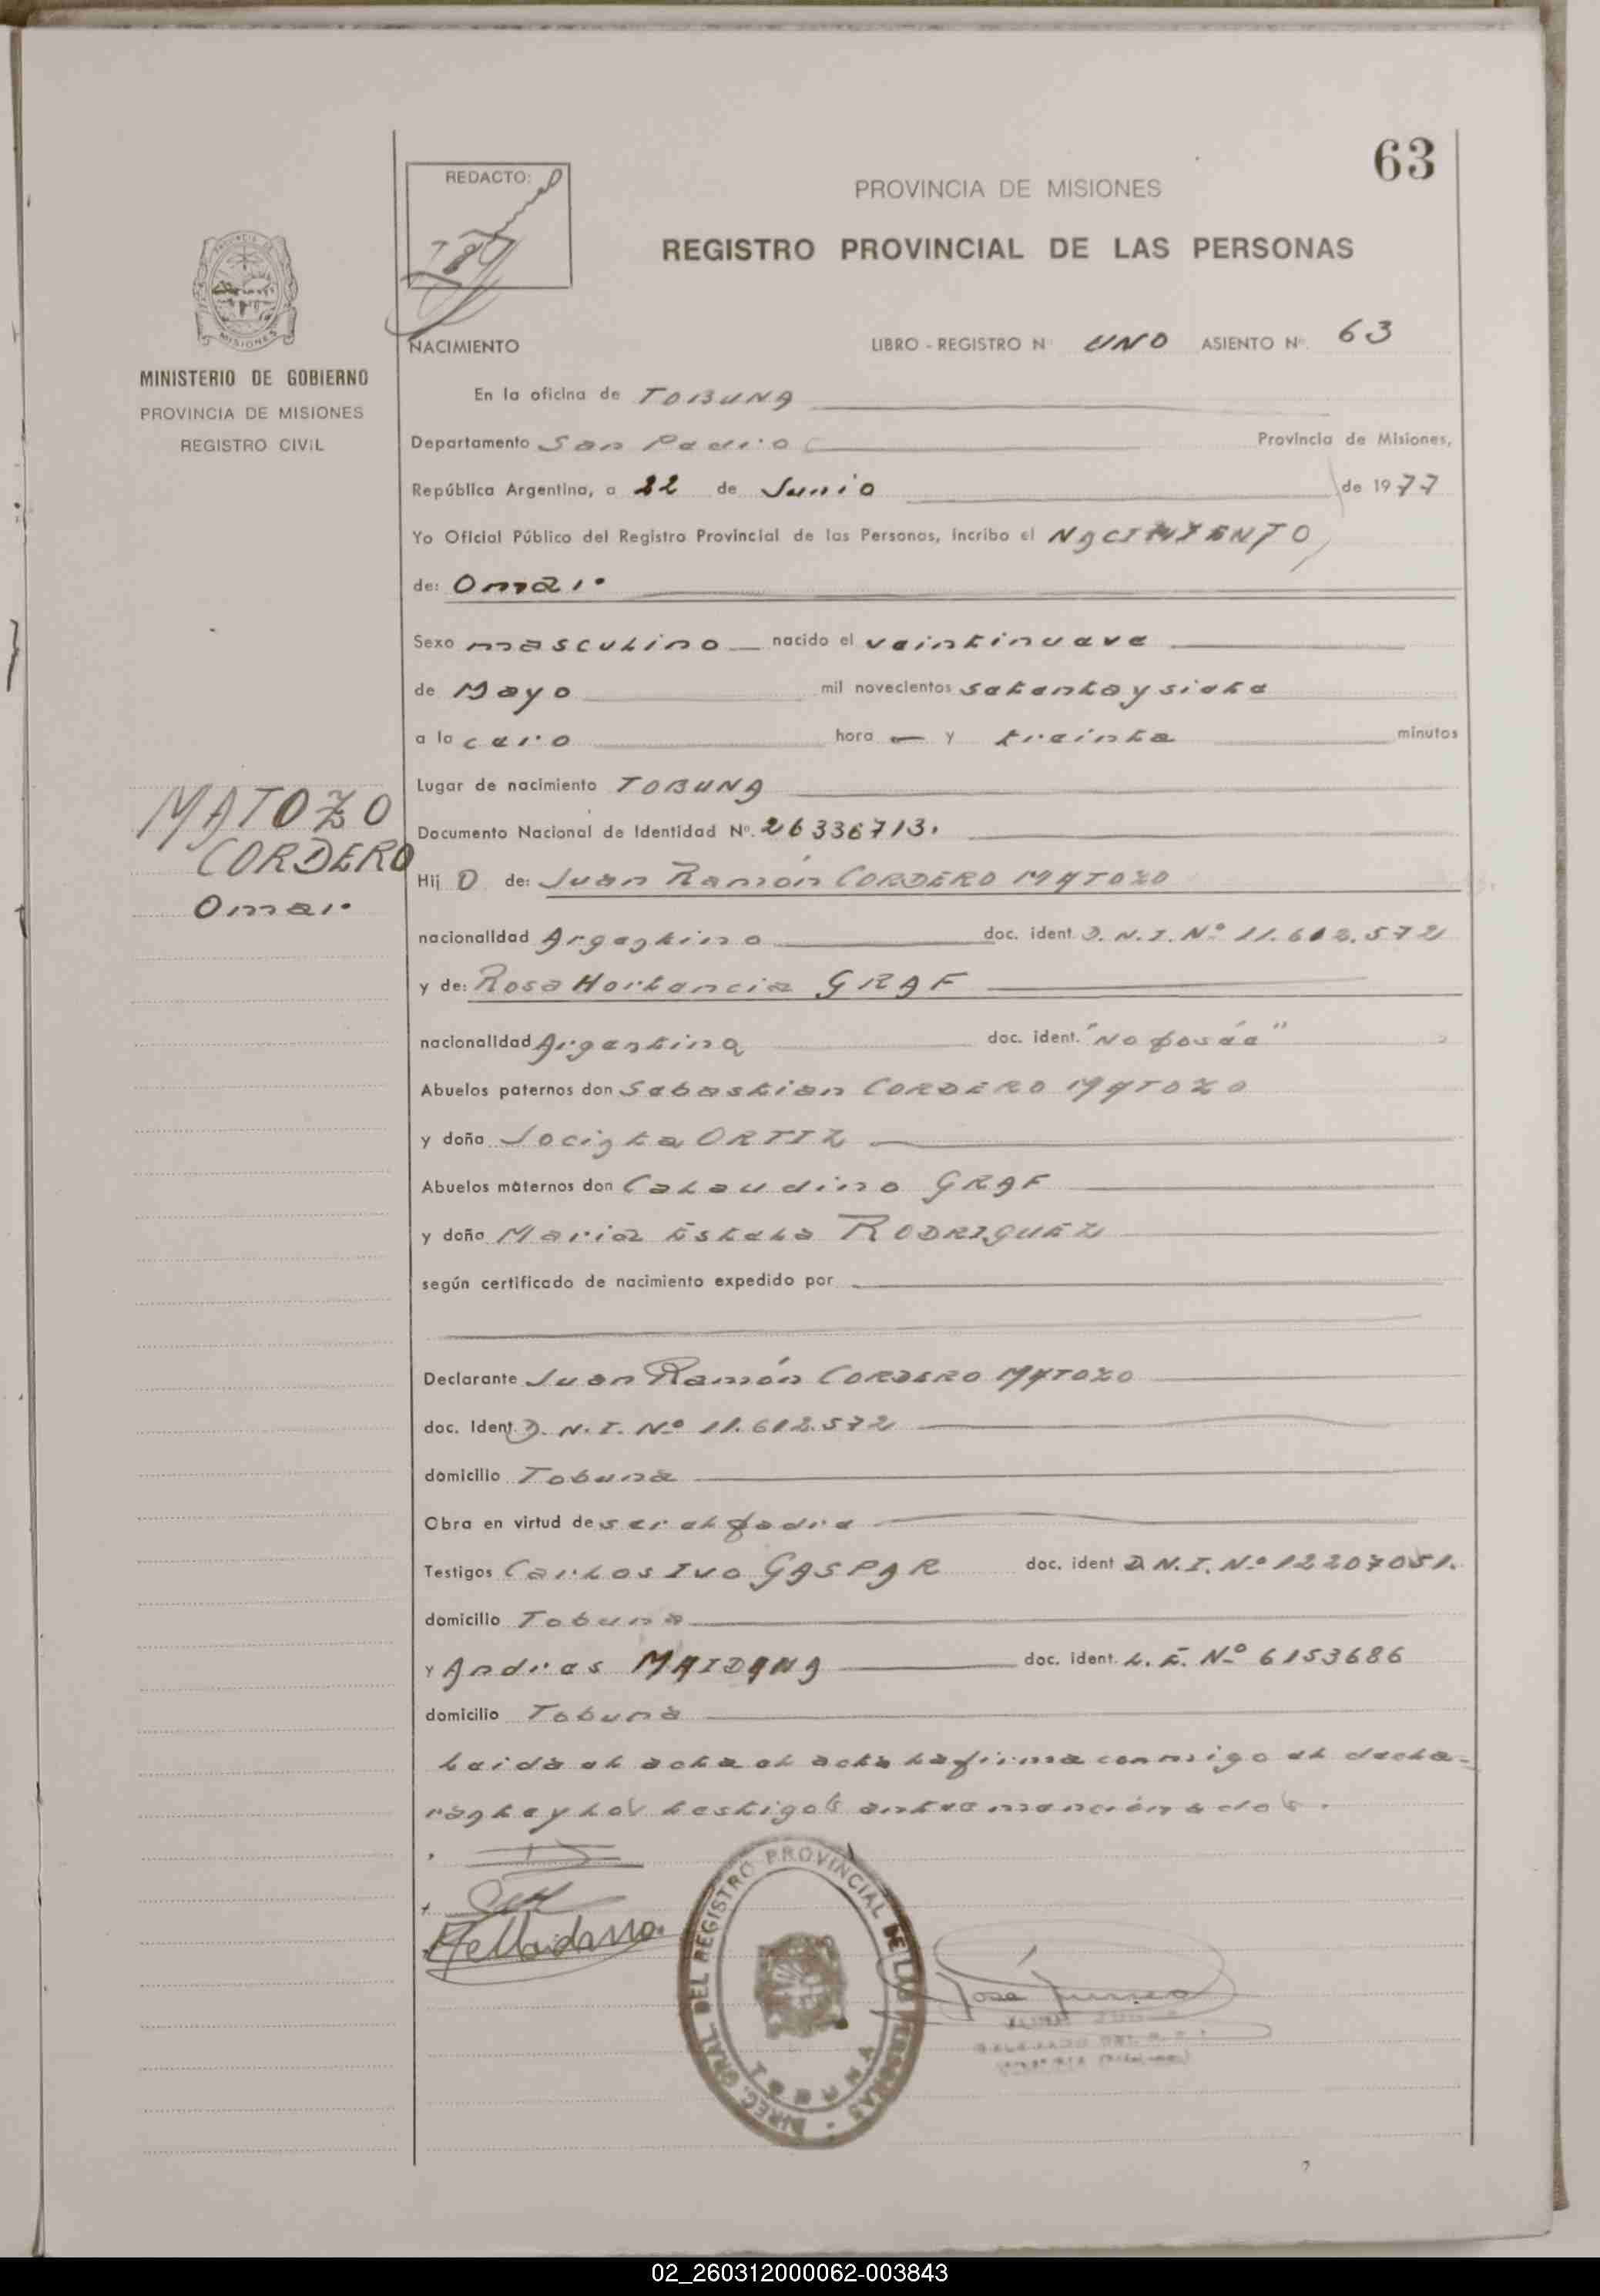 63
REDACTO:
PROVINCIA DE MISIONES
REGISTRO PROVINCIAL DE LAS PERSONAS
MISIONES
MINISTERIO DE GOBIERNO
PROVINCIA DE MISIONES
REGISTRO CIVIL
NACIMIENTO LIBRO - REGISTRO Nº UNO ASIENTO Nº. 63
En la oficina de TOBUNA
Departamento San Pedro Provincia de Misiones,
República Argentina, a 22 de Junio de 1977
Yo Oficial Público del Registro Provincial de las Personas, incribo el NACIMIENTO
de: Omar
Sexo masculino nacido el veintinueve
de Mayo mil novecientos setenta y siete
a la cero hora — y treinta minutos
Lugar de nacimiento TOBUNA
MATOZO
CORDERO
Omar
Documento Nacional de Identidad Nº. 26336713.
Hij O de: Juan Ramón CORDERO MATOZO
nacionalidad Argentino doc. ident. D.N.I. Nº 11.612.572
y de: Rosa Hortencia GRAF
nacionalidad Argentina doc. ident. "No poseé"
Abuelos paternos don Sebastian CORDERO MATOZO
y doña Jocinta ORTIZ
Abuelos maternos don Calaudino GRAF
y doña Maria Estela RODRIGUEZ
según certificado de nacimiento expedido por
Declarante Juan Ramón CORDERO MATOZO
doc. Ident. D.N.I. Nº 11.612.572
domicilio Tobuna
Obra en virtud de ser el padre
Testigos Carlos Ivo GASPAR doc. ident D.N.I. Nº 12207051.
domicilio Tobuna
y Andres MAIDANA doc. ident. L.E. Nº 6153686
domicilio Tobuna
Leida el acta el acta la firma conmigo el decla-
rante y los testigos antes mencionados.
DIREC. GRAL. DEL REGISTRO PROVINCIAL DE LAS PERSONAS
02_260312000062-003843